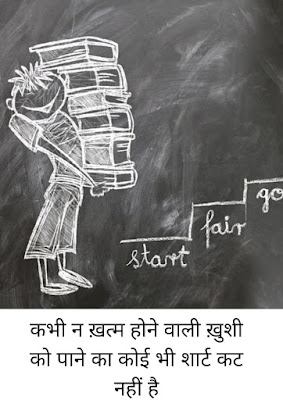 go
fair
start
कभी न ख़त्म होने वाली ख़ुशी
को पाने का कोई भी शार्ट कट
नहीं है